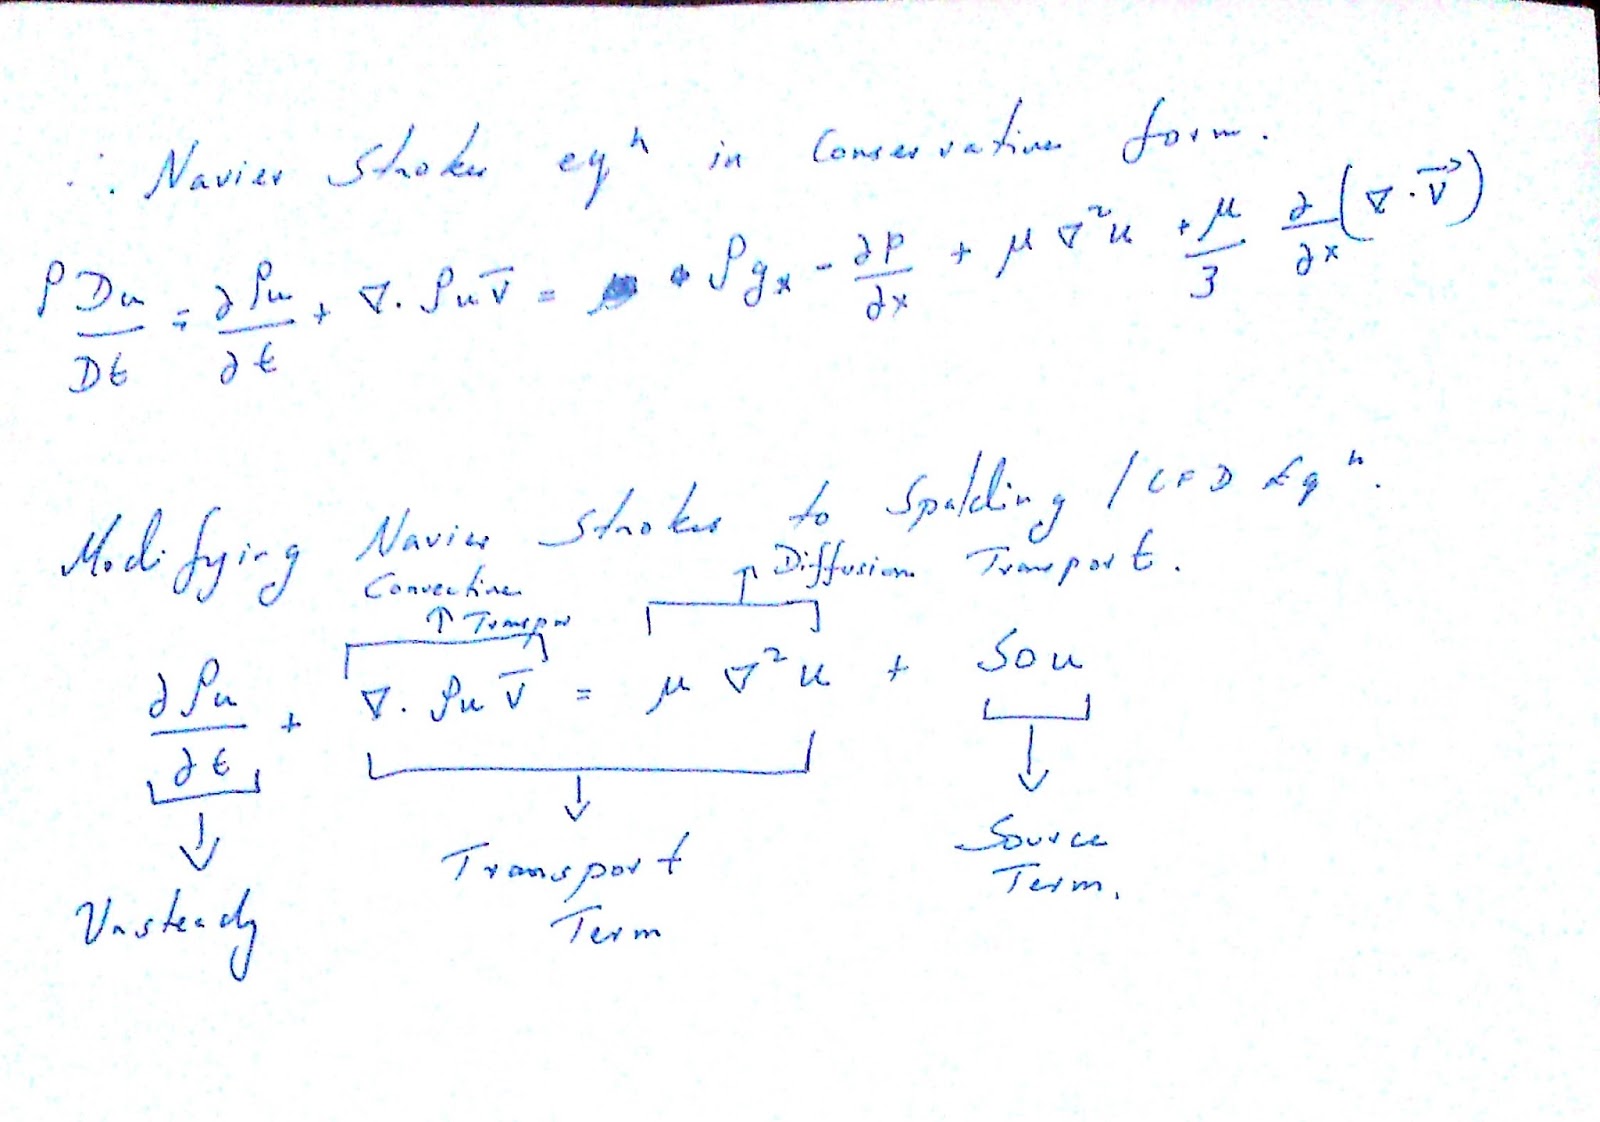 ∴ Navier Stokes eqⁿ in Conservative form.
ρ Du/Dt = ∂ρu/∂t + ∇. ρu V̅ = ρgₓ - ∂P/∂x + μ ∇²u + μ/3 ∂/∂x (∇.V⃗)
Modifying Navier Stokes to Spalding / CFD Eqⁿ.
Convective ↑ Diffusion Transport.
↑ Transpor
∂ρu/∂t + ∇. ρu V̅ = μ ∇²u + Sou
↓ ↓ ↓
Unsteady Transport Source
Term Term.